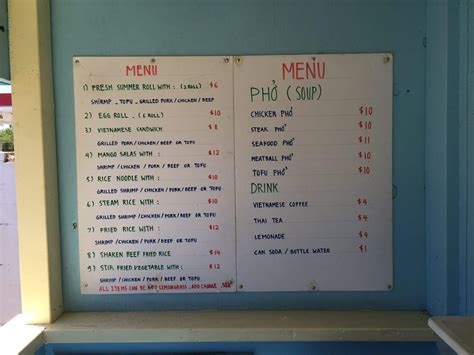 MENU
1) FRESH SUMMER ROLL WITH : (2 ROLL) $6
SHRIMP _ TOFU _ GRILLED PORK / CHICKEN / BEEF
2) EGG ROLL _ (6 ROLL) $10
3) VIETNAMESE SANDWICH $8
GRILLED PORK / CHICKEN / BEEF OR TOFU
4) MANGO SALAS WITH : $12
SHRIMP / CHICKEN / PORK / BEEF OR TOFU
5) RICE NOODLE WITH : $12
GRILLED SHRIMP / CHICKEN / PORK / BEEF OR TOFU
6) STEAM RICE WITH : $12
GRILLED SHRIMP / CHICKEN / PORK / BEEF OR TOFU
7) FRIED RICE WITH : $12
SHRIMP / CHICKEN / PORK / BEEF OR TOFU
8) SHAKEN BEEF FRIED RICE $14
9) STIR FRIED VEGETABLE WITH : $12
SHRIMP / CHICKEN / PORK / BEEF OR TOFU
ALL ITEMS CAN BE ADD LEMONGRASS
MENU
PHỞ (SOUP)
CHICKEN PHỞ $10
STEAK PHỞ $10
SEAFOOD PHỞ $11
MEATBALL PHỞ $10
TOFU PHỞ $10
DRINK
VIETNAMESE COFFEE $4
THAI TEA $4
LEMONADE $4
CAN SODA / BOTTLE WATER $1